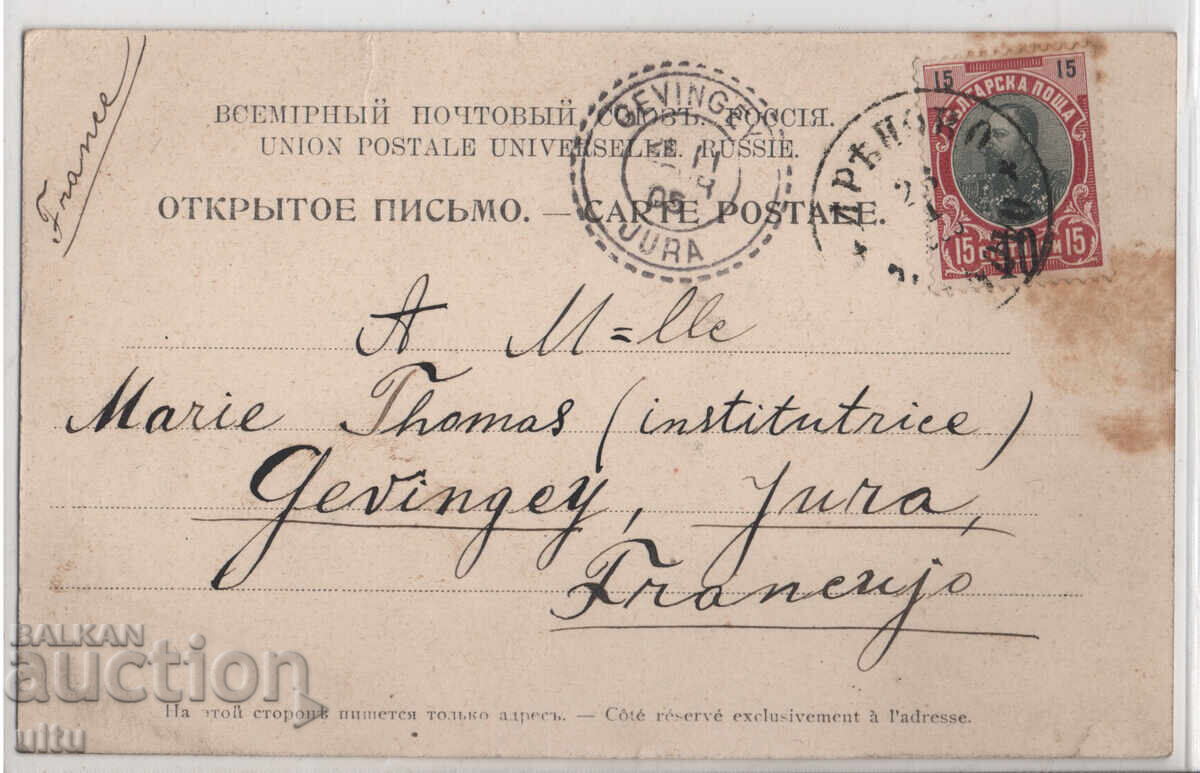 France
ВСЕМІРНЫЙ ПОЧТОВЫЙ СОЮЗЪ. РОССІЯ.
UNION POSTALE UNIVERSELLE. RUSSIE.
ОТКРЫТОЕ ПИСЬМО. — CARTE POSTALE.
GEVINGEY
11
05
JURA
15 15
БЪЛГАРСКА ПОЩА
15 15
10
A M=lle
Marie Thomas (institutrice)
Gevingey, Jura,
Francujo
На этой сторонѣ пишется только адресъ. — Côté réservé exclusivement à l'adresse.
BALKAN
auction
ultu